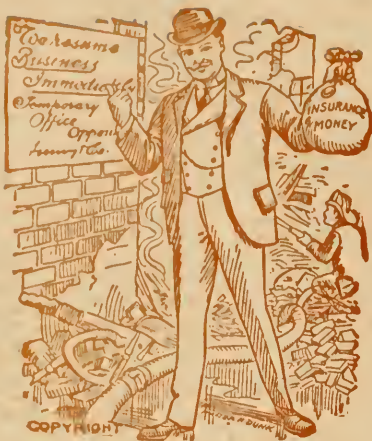 We Resume
Business
Immediately
Temporary
Office
INSURANCE
MONEY
COPYRIGHT